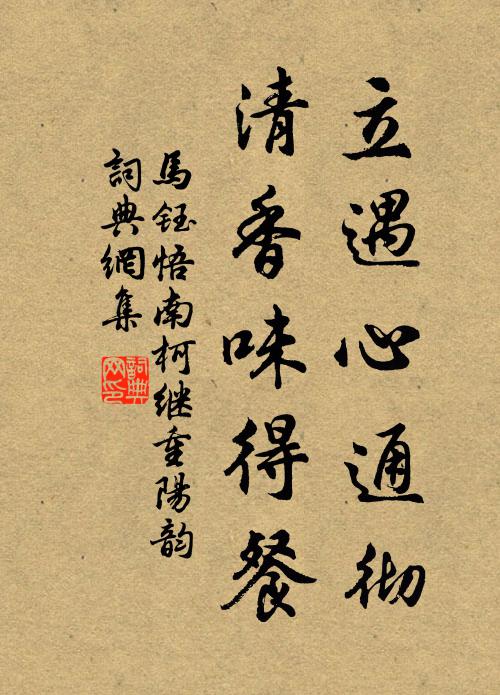 立遇心通彻
清香味得餐
馬鈺悟南柯继重陽韵
詞典網集
詞典
网印